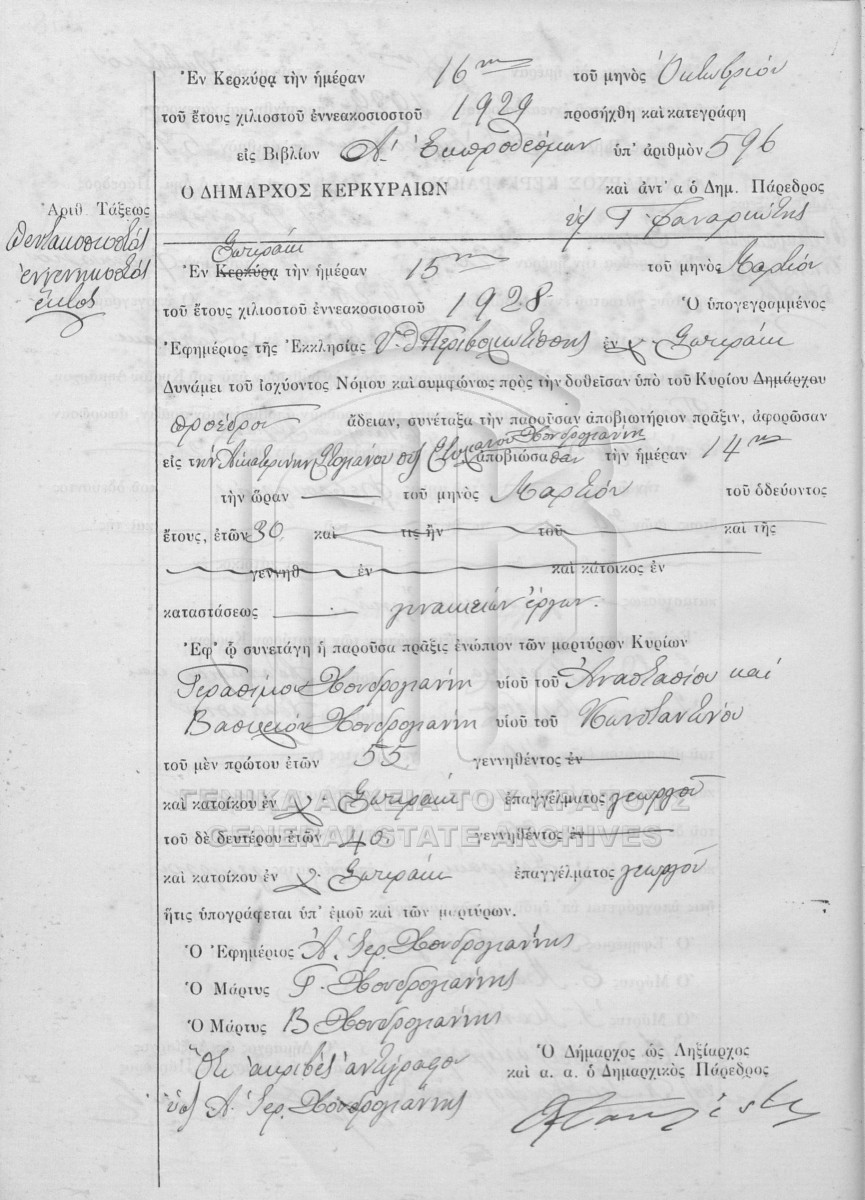 Ἐν Κερκύρᾳ τὴν ἡμέραν 16ην τοῦ μηνὸς Ὀκτωβρίου
τοῦ ἔτους χιλιοστοῦ ἐννεακοσιοστοῦ 1929 προσήχθη καὶ κατεγράφη
εἰς Βιβλίον Α' Ἐκπροθέσμων ὑπ' ἀριθμὸν 596
Ο ΔΗΜΑΡΧΟΣ ΚΕΡΚΥΡΑΙΩΝ καὶ ἀντ' α ὁ Δημ. Πάρεδρος
Γ Φαναριώτης
Ἀριθ. Τάξεως
Πεντακοσιοστὸς
ἐννενηκοστὸς
ἕκτος
Σωκράκι
Ἐν Κερκύρᾳ τὴν ἡμέραν 15ην τοῦ μηνὸς Μαρτίου
τοῦ ἔτους χιλιοστοῦ ἐννεακοσιοστοῦ 1928 Ὁ ὑπογεγραμμένος
Ἐφημέριος τῆς Ἐκκλησίας Υ.Θ Περιβλεπτίσης ἐν χ. Σωκράκι
Δυνάμει τοῦ ἰσχύοντος Νόμου καὶ συμφώνως πρὸς τὴν δοθεῖσαν ὑπὸ τοῦ Κυρίου Δημάρχου
προέδρου ἄδειαν, συνέταξα τὴν παροῦσαν ἀποβιωτήριον πρᾶξιν, ἀφορῶσαν
εἰς τὴν Αἰκατερίνην Στυλιανοῦ Χονδρογιάννη ἀποβιώσασαν τὴν ἡμέραν 14ην
τὴν ὥραν τοῦ μηνὸς Μαρτίου τοῦ ὁδεύοντος
ἔτους, ἐτῶν 30 καὶ τις ἦν τοῦ καὶ τῆς
γεννηθ ἐν καὶ κάτοικος ἐν
καταστάσεως γυναικείων ἔργων.
Ἐφ' ᾧ συνετάγη ἡ παροῦσα πρᾶξις ἐνώπιον τῶν μαρτύρων Κυρίων
Γερασίμου Χονδρογιάννη υἱοῦ τοῦ Ἀναστασίου καὶ
Βασιλείου Χονδρογιάννη υἱοῦ τοῦ Κωνσταντίνου
τοῦ μὲν πρώτου ἐτῶν 55 γεννηθέντος ἐν
καὶ κατοίκου ἐν χ. Σωκράκι ἐπαγγέλματος γεωργοῦ
ΓΕΝΙΚΑ ΑΡΧΕΙΑ ΤΟΥ ΚΡΑΤΟΥΣ
τοῦ δὲ δευτέρου ἐτῶν 40 γεννηθέντος ἐν
GENERAL STATE ARCHIVES
καὶ κατοίκου ἐν χ. Σωκράκι ἐπαγγέλματος γεωργοῦ
ἥτις ὑπογράφεται ὑπ' ἐμοῦ καὶ τῶν μαρτύρων.
Ὁ Ἐφημέριος Α. Ἱερ. Χονδρογιάννης
Ὁ Μάρτυς Γ. Χονδρογιάννης
Ὁ Μάρτυς Β Χονδρογιάννης
Ὅτι ἀκριβὲς ἀντίγραφον
Α. Ἱερ. Χονδρογιάννης
Ὁ Δήμαρχος ὡς Ληξίαρχος
καὶ α. α. ὁ Δημαρχικὸς Πάρεδρος